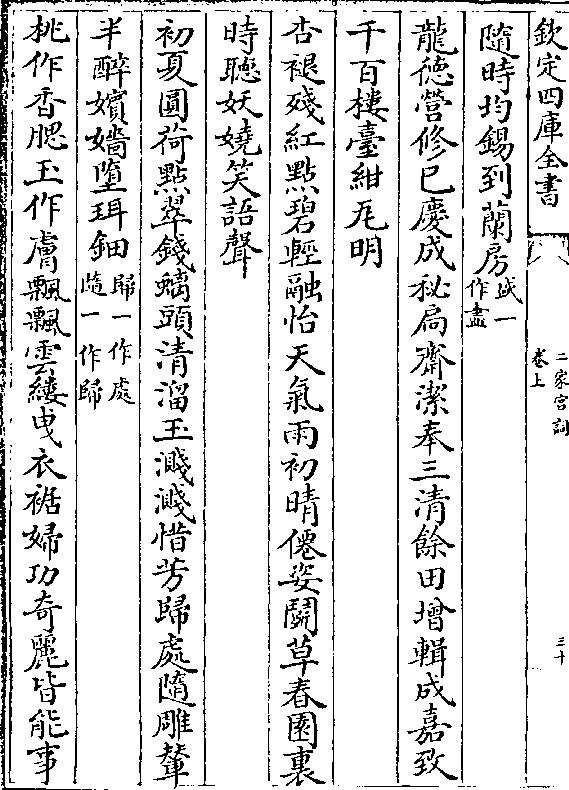 欽定四庫全書
二家宮詞
卷上
三十
隨時均錫到蘭房盛一作盡
龍徳營修已慶成秘扄齋潔奉三清餘田增輯成嘉致
千百樓臺紺瓦明
杏褪殘紅點碧輕融怡天氣雨初晴僊姿鬬草春園裏
時聽妖嬈笑語聲
初夏圓荷點翠錢螭頭清溜玉濺濺惜芳歸處隨雕輦
半醉嬪嬙墮珥鈿歸一作處隨一作歸
桃作香腮玉作膚飄飄雲縷曳衣裾婦功奇麗皆能事